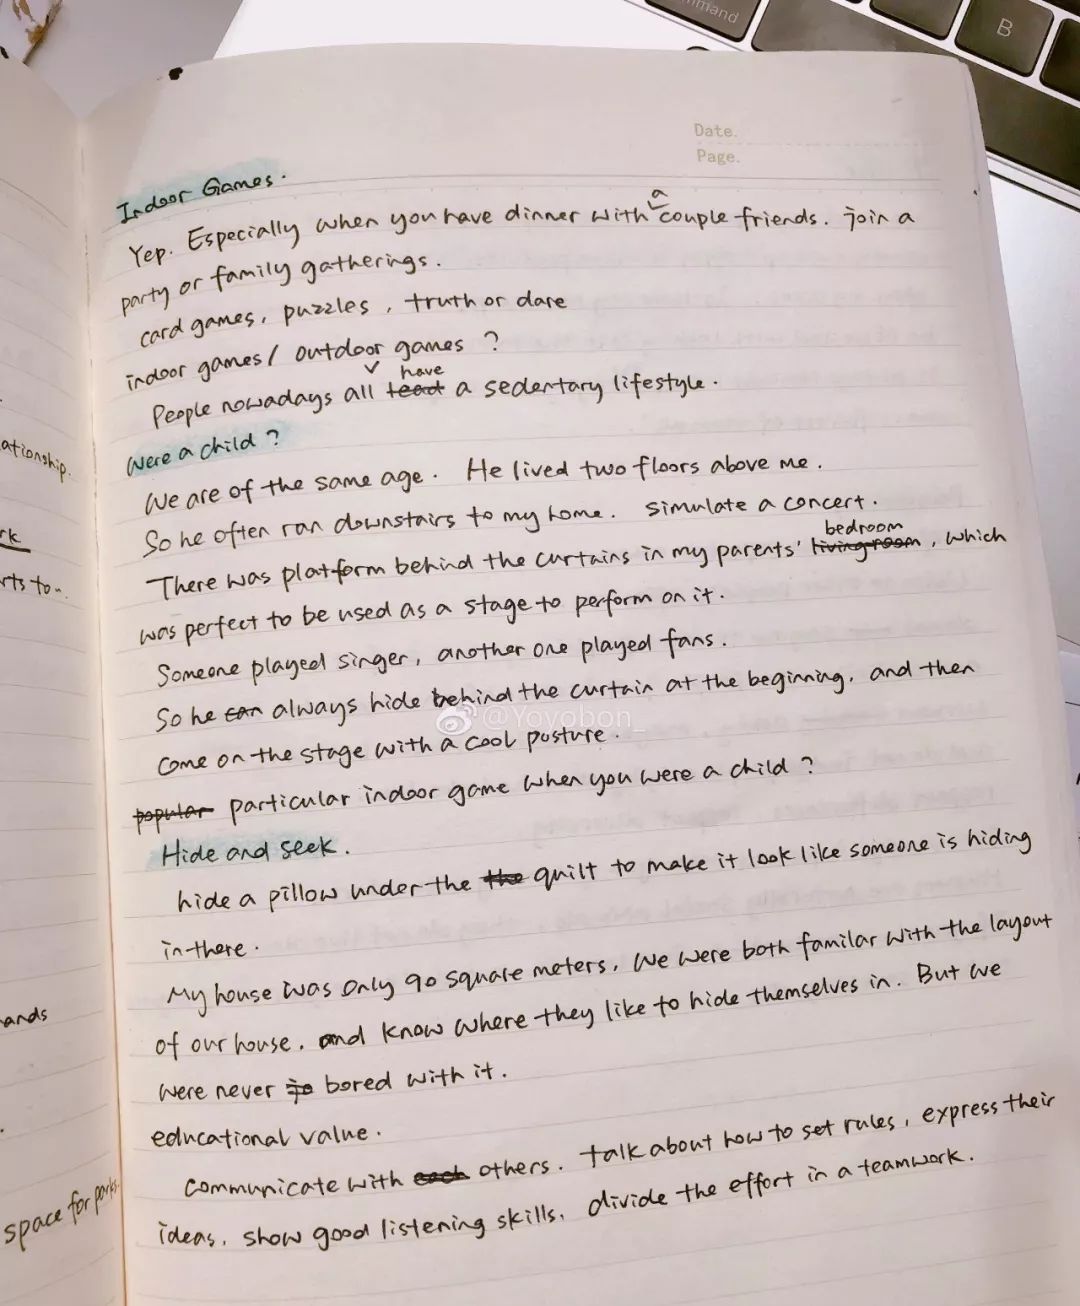 mmand
B
Date.
Page.
Indoor Games.
Yep. Especially when you have dinner with a couple friends. join a
party or family gatherings.
card games, puzzles, truth or dare
indoor games / outdoor games ?
have
People nowadays all lead a sedentary lifestyle.
Were a child ?
We are of the same age. He lived two floors above me.
So he often ran downstairs to my home. simulate a concert.
bedroom
There was platform behind the curtains in my parents' living room, which
was perfect to be used as a stage to perform on it.
Someone played singer, another one played fans.
So he can always hide behind the curtain at the beginning, and then
@Yoyobon_
come on the stage with a cool posture.
popular particular indoor game when you were a child ?
Hide and seek.
hide a pillow under the the quilt to make it look like someone is hiding
in there.
My house was only 90 square meters, we were both familar with the layout
of our house, and know where they like to hide themselves in. But we
were never to bored with it.
educational value.
communicate with each others. talk about how to set rules, express their
ideas, show good listening skills, divide the effort in a teamwork.
ationship.
rk
rts to..
ands
space for parks.